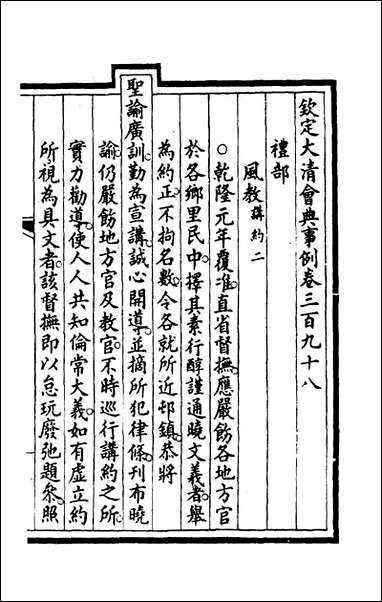 欽定大清會典事例卷三百九十八
禮部
風教講約二
○乾隆元年覆准直省督撫應嚴飭各地方官
於各鄉里民中擇其素行醇謹通曉文義者舉
為約正不拘名數令各就所近邨鎮恭將
聖諭廣訓勤為宣講誠心開導並摘所犯律條刊布曉
諭仍嚴飭地方官及教官不時巡行講約之所
實力勸導使人人共知倫常大義如有虛立約
所視為具文者該督撫即以怠玩廢弛題參照